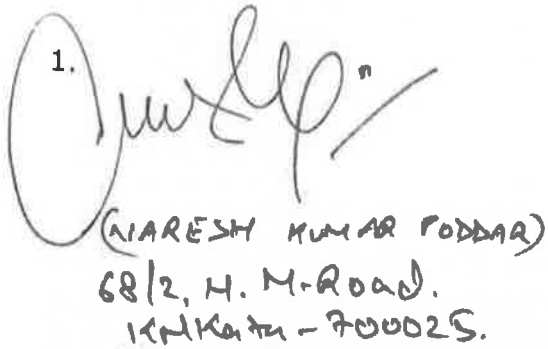 1.
(NARESH KUMAR PODDAR)
68/2, H. M. Road.
Kolkata - 700025.